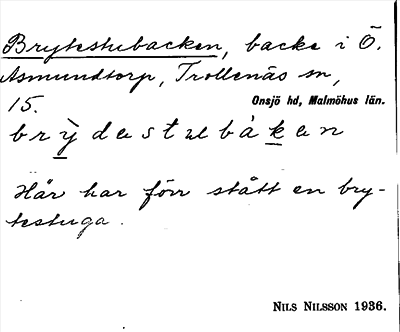 Brytestubacken, backe i Ö.
Asmundtorp, Trollenäs sn,
15.
Onsjö hd, Malmöhus län.
brỳdestubáken
Här har förr stått en bry-
testuga.
NILS NILSSON 1936.